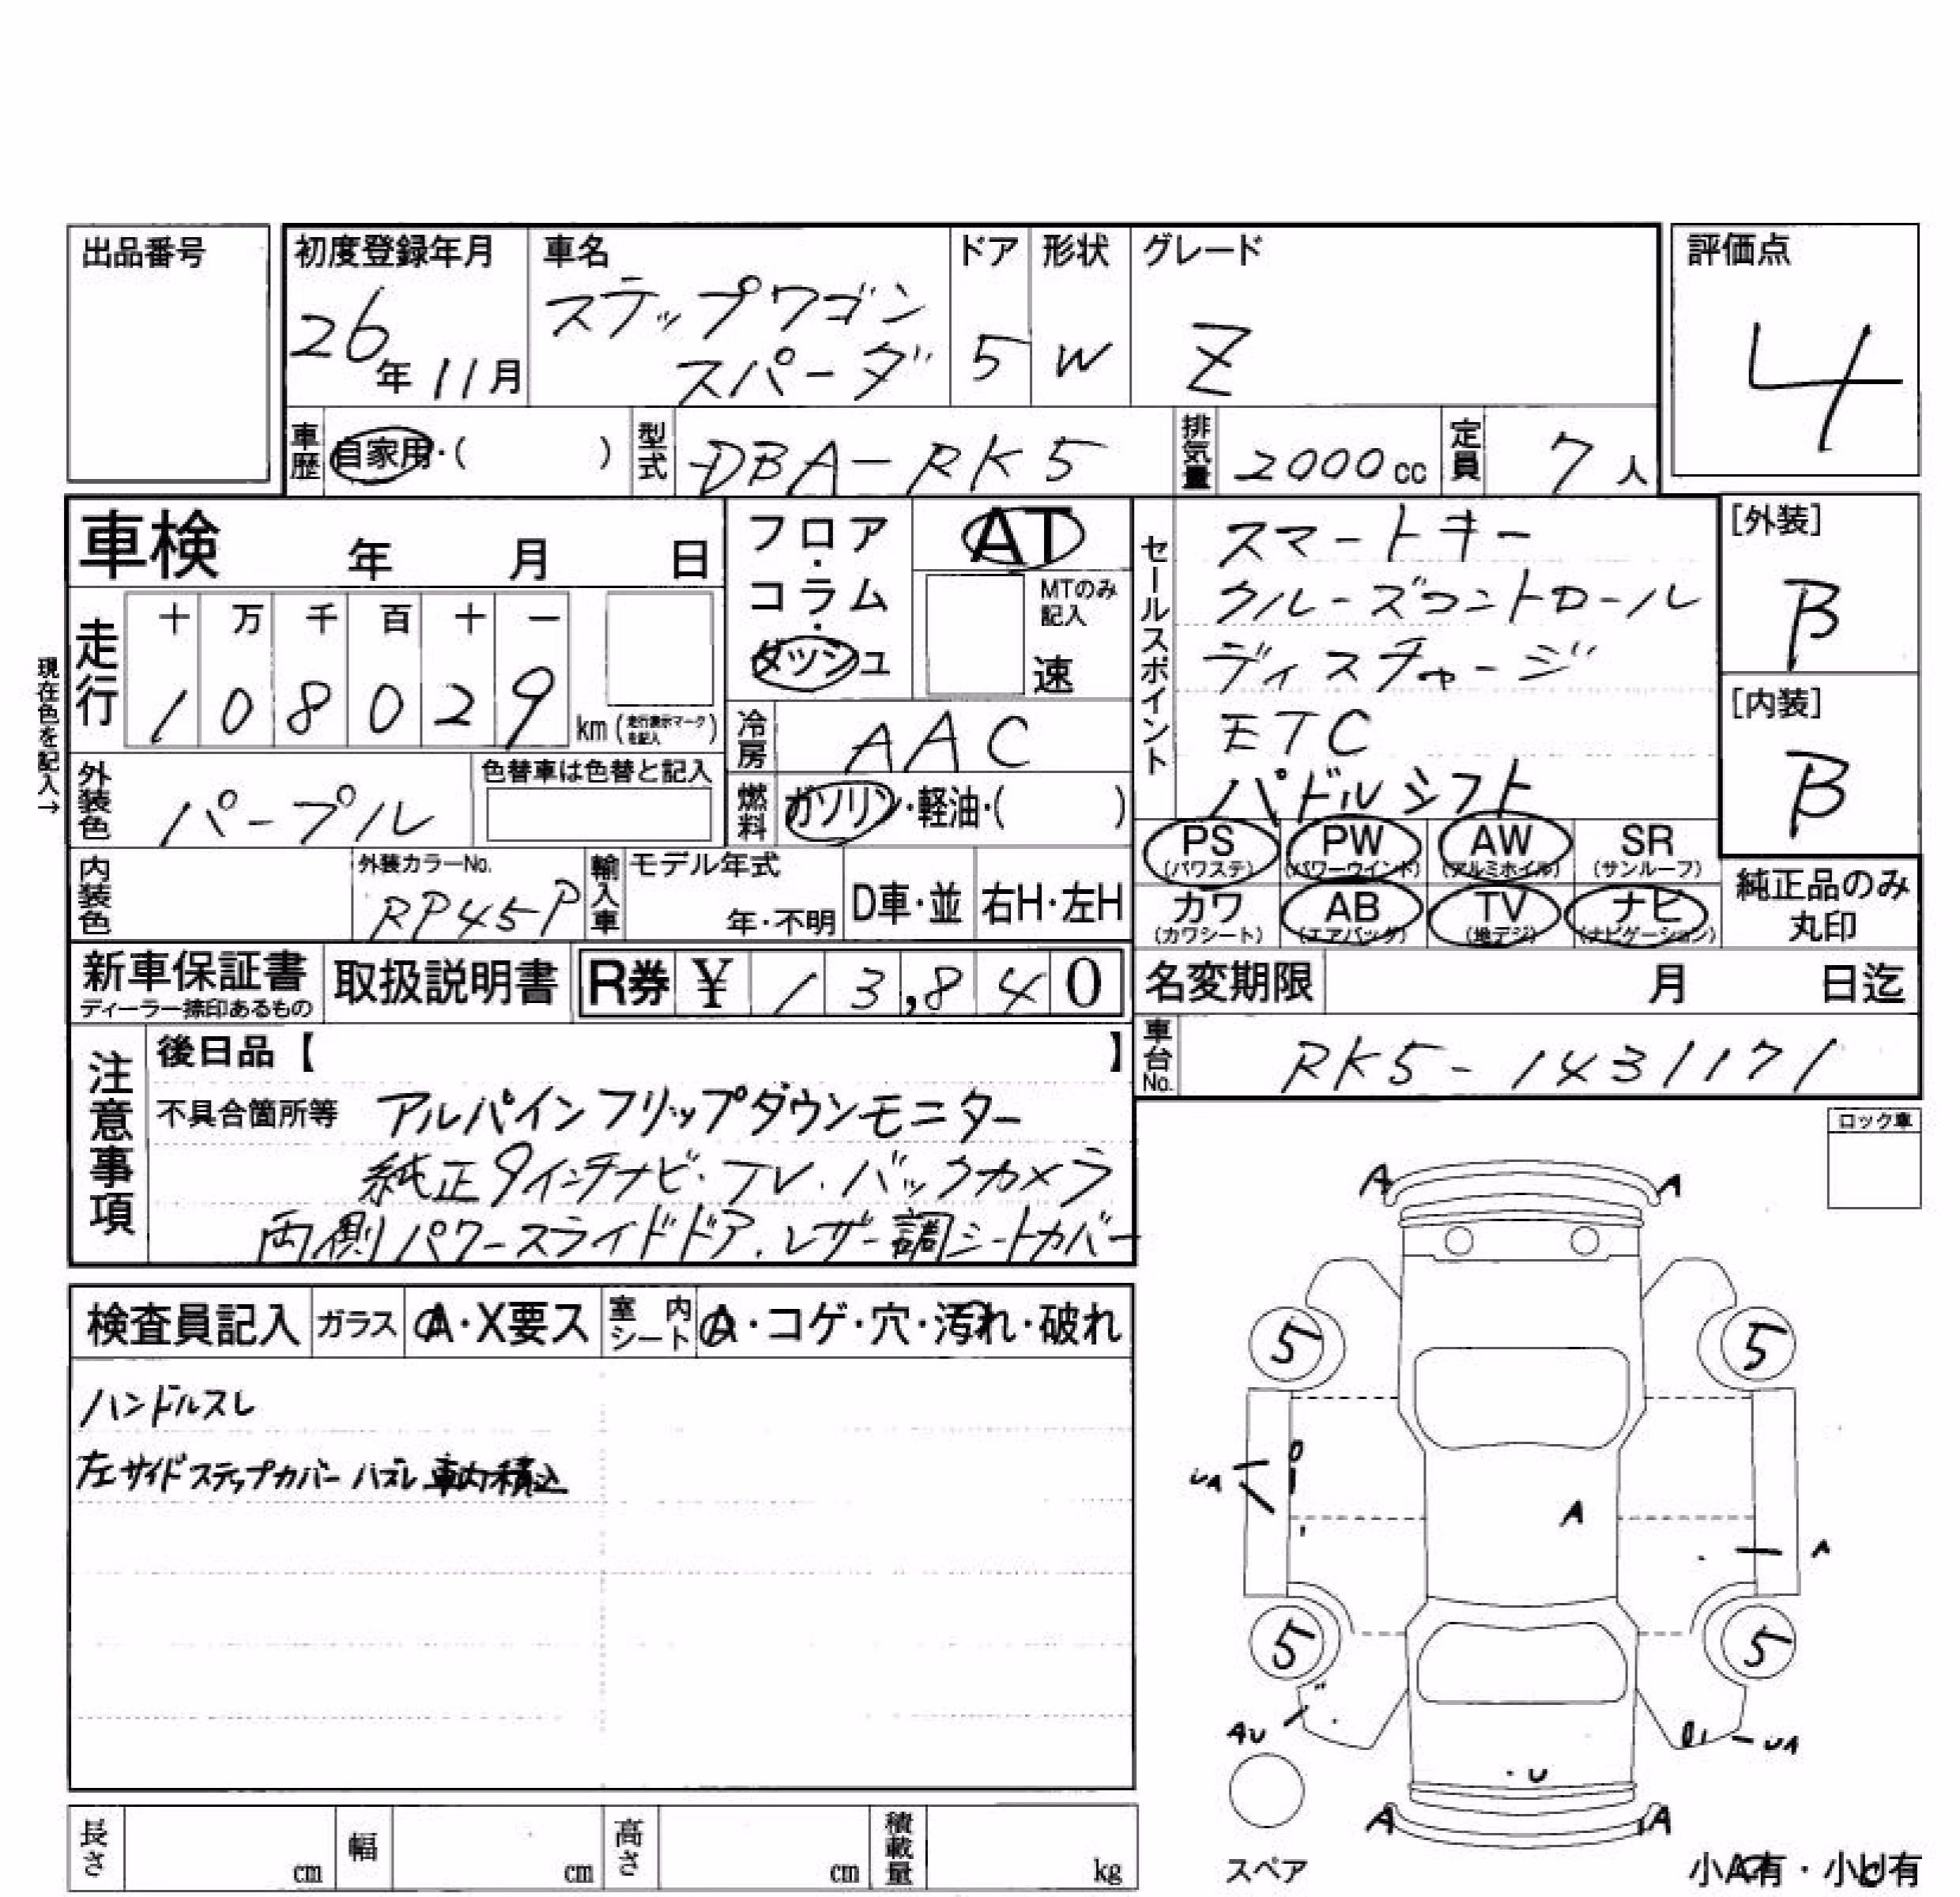 出品番号
初度登録年月 車名 ドア 形状 グレード 評価点
26年11月 ステップワゴン スパーダ 5 W Z 4
車歴 自家用・( ) 型式 DBA-RK5 排気量 2000cc 定員 7人
車検 年 月 日
フロア・コラム・ダッシュ
AT
MTのみ記入
速
セールスポイント
スマートキー
クルーズコントロール
ディスチャージ
ETC
パドルシフト
[外装]
B
[内装]
B
現在色を記入→
走行 十 万 千 百 十 一
1 0 8 0 2 9 km (走行表示マークを記入)
冷房 AAC
外装色 パープル 色替車は色替と記入
燃料 ガソリン・軽油・( )
PS (パワステ) PW (パワーウインド) AW (アルミホイル) SR (サンルーフ)
カワ (カワシート) AB (エアバッグ) TV (地デジ) ナビ (ナビゲーション)
純正品のみ丸印
内装色 外装カラーNo. RP45P 輸入車 モデル年式 年・不明 D車・並 右H・左H
新車保証書 ディーラー捺印あるもの 取扱説明書 R券 ¥ 13,840
名変期限 月 日迄
車台No. RK5-1431171
注意事項
後日品【 】
不具合箇所等 アルパインフリップダウンモニター
純正9インチナビ・TV・バックカメラ
両側パワースライドドア.レザー調シートカバー
ロック車
検査員記入 ガラス A・X要ス 室内シート A・コゲ・穴・汚れ・破れ
ハンドルスレ
左サイドステップカバー ハズレ 車内積込
A A
5 5
UA
A
A
5 5
AU
UA
U
A A
スペア
小A有・小U有
長さ cm 幅 cm 高さ cm 積載量 kg